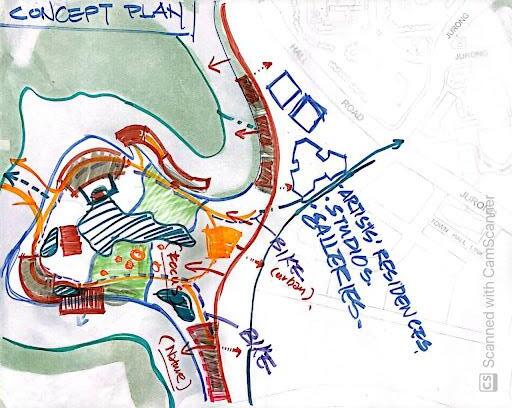 CONCEPT PLAN
JURONG
JURONG
HALL
ROAD
JURONG
TOWN HALL
• ARTISTS' RESIDENCES
• STUDIOS
• GALLERIES
BIKE
(urban)
FOCUS
BIKE
(Nature)
CS Scanned with CamScanner